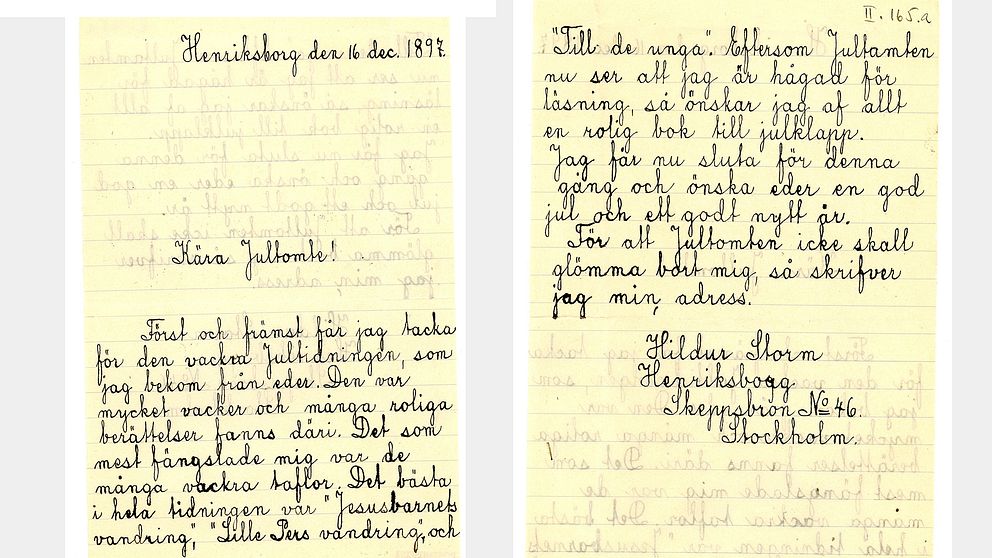 Henriksborg den 16 dec. 1897.
Kära Jultomte!
Först och främst får jag tacka
för den vackra Jultidningen, som
jag bekom från eder. Den var
mycket vacker och många roliga
berättelser fanns däri. Det som
mest fängslade mig var de
många vackra taflor. Det bästa
i hela tidningen var "Jesusbarnets
vandring," "Lille Pers vandring", och
II. 165.a
"Till de unga". Eftersom Jultomten
nu ser att jag är hågad för
läsning, så önskar jag af allt
en rolig bok till julklapp.
Jag får nu sluta för denna
gång och önska eder en god
jul och ett godt nytt år.
För att Jultomten icke skall
glömma bort mig, så skrifver
jag min adress.
Hildur Storm
Henriksborg
Skeppsbron No 46.
Stockholm.